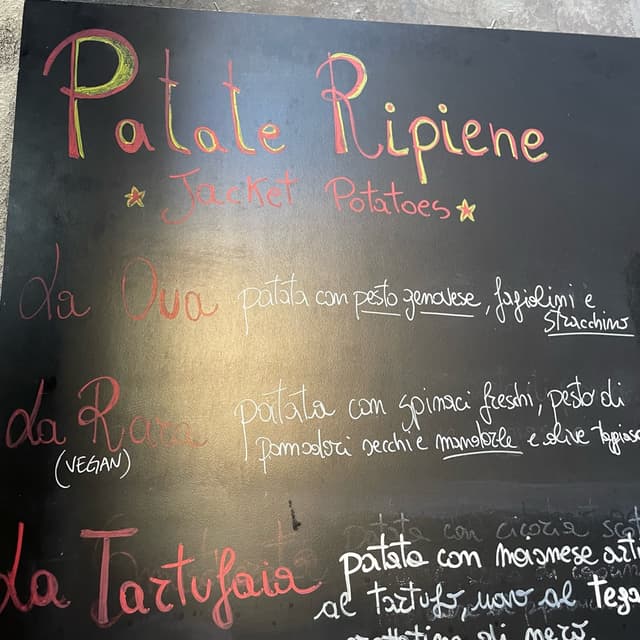 Patate Ripiene
Jacket Potatoes
La Ova patata con pesto genovese, fagiolini e
stracchino
La Rara patata con spinaci freschi, pesto di
(VEGAN) pomodori secchi e mandorle e olive taggiasc
La Tartufaia patata con maionese arti
al tartufo, uovo al tega
di nero